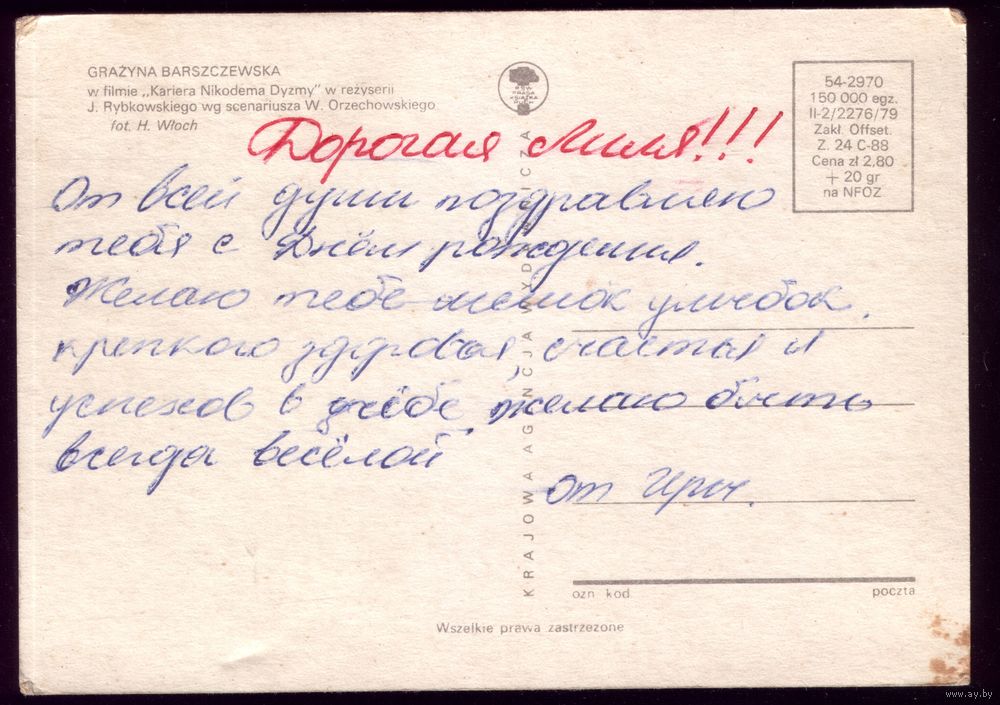 GRAŻYNA BARSZCZEWSKA
w filmie „Kariera Nikodema Dyzmy” w reżyserii
J. Rybkowskiego wg scenariusza W. Orzechowskiego
fot. H. Włoch
54-2970
150 000 egz.
II-2/2276/79
Zakł. Offset.
Z. 24 C-88
Cena zł 2,80
+ 20 gr
na NFOZ
Дорогая Миля!!!
От всей души поздравляю
тебя с Днём рождения.
Желаю тебе мешок улыбок,
крепкого здоровья счастья и
успехов в учёбе, желаю быть
всегда весёлой
от Иры.
KRAJOWA AGENCJA WYDAWNICZA
ozn kod
poczta
Wszelkie prawa zastrzeżone
www.ay.by